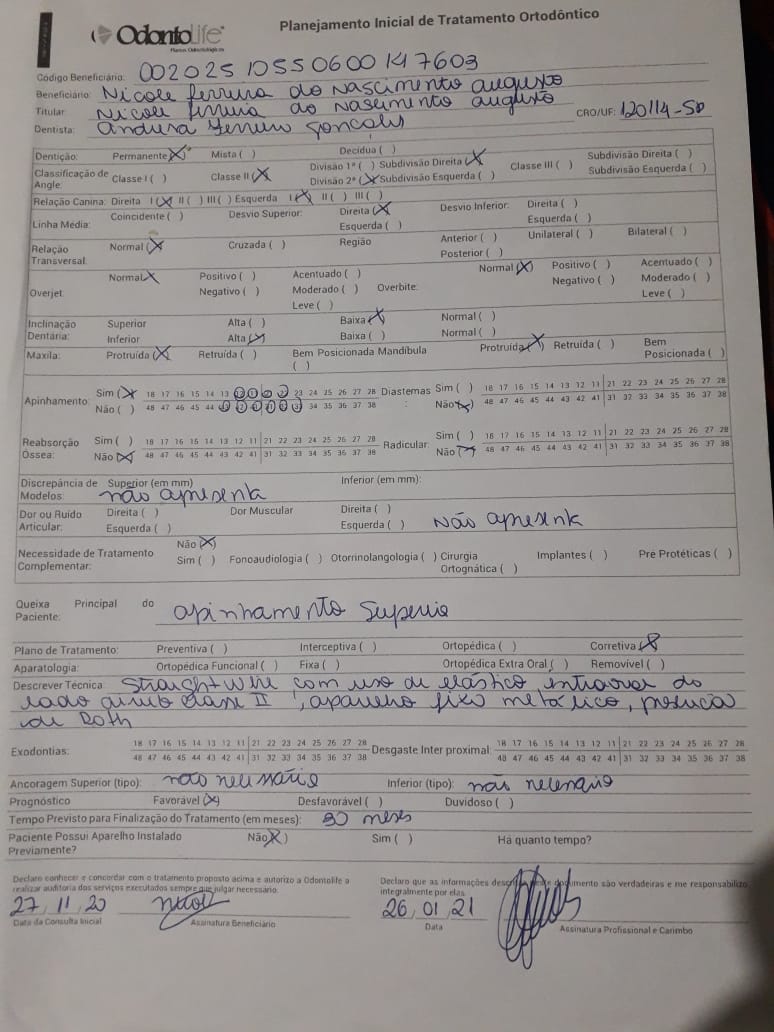 OdontoLife
Planos Odontológicos
Planejamento Inicial de Tratamento Ortodôntico
Código Beneficiário: 00202510550600147603
Beneficiário: Nicole Ferreira do Nascimento Augusto
Titular: Nicole Ferreira do Nascimento Augusto
Dentista: CRO/UF: 120114-SP
Dentição: Permanente (X) Mista ( ) Decídua ( )
Classificação de Angle: Classe I ( ) Classe II (X) Divisão 1ª ( ) Subdivisão Direita (X) Classe III ( ) Subdivisão Direita ( )
Divisão 2ª (X) Subdivisão Esquerda ( ) Subdivisão Esquerda ( )
Relação Canina: Direita I (X) II ( ) III ( ) Esquerda I (X) II ( ) III ( )
Linha Média: Coincidente ( ) Desvio Superior: Direita (X) Desvio Inferior: Direita ( )
Esquerda ( ) Esquerda ( )
Relação Transversal: Normal (X) Cruzada ( ) Região Anterior ( ) Unilateral ( ) Bilateral ( )
Posterior ( )
Overjet: Normal (X) Positivo ( ) Acentuado ( ) Overbite: Normal (X) Positivo ( ) Acentuado ( )
Negativo ( ) Moderado ( ) Negativo ( ) Moderado ( )
Leve ( ) Leve ( )
Inclinação Dentária: Superior Alta ( ) Baixa (X) Normal ( )
Inferior Alta (X) Baixa ( ) Normal ( )
Maxila: Protruída (X) Retruída ( ) Bem Posicionada ( ) Mandíbula Protruída (X) Retruída ( ) Bem Posicionada ( )
Apinhamento: Sim (X) 18 17 16 15 14 13 12 11 21 22 23 24 25 26 27 28 Diastemas: Sim ( ) 18 17 16 15 14 13 12 11 21 22 23 24 25 26 27 28
Não ( ) 48 47 46 45 44 43 42 41 31 32 33 34 35 36 37 38 Não (X) 48 47 46 45 44 43 42 41 31 32 33 34 35 36 37 38
Reabsorção Óssea: Sim ( ) 18 17 16 15 14 13 12 11 21 22 23 24 25 26 27 28 Radicular: Sim ( ) 18 17 16 15 14 13 12 11 21 22 23 24 25 26 27 28
Não (X) 48 47 46 45 44 43 42 41 31 32 33 34 35 36 37 38 Não (X) 48 47 46 45 44 43 42 41 31 32 33 34 35 36 37 38
Discrepância de Modelos: Superior (em mm) Inferior (em mm):
não apresenta
Dor ou Ruído Articular: Direita ( ) Dor Muscular Direita ( )
Esquerda ( ) Esquerda ( ) Não apresenta
Necessidade de Tratamento Complementar: Não (X)
Sim ( ) Fonoaudiologia ( ) Otorrinolangologia ( ) Cirurgia Ortognática ( ) Implantes ( ) Pré Protéticas ( )
Queixa Principal do Paciente: apinhamento Superio
Plano de Tratamento: Preventiva ( ) Interceptiva ( ) Ortopédica ( ) Corretiva (X)
Aparatologia: Ortopédica Funcional ( ) Fixa ( ) Ortopédica Extra Oral ( ) Removível ( )
Descrever Técnica Straight Wire com uso de elástico do
lado classe II, aparelho fixo metálico,
de Roth
Exodontias: 18 17 16 15 14 13 12 11 21 22 23 24 25 26 27 28 Desgaste Inter proximal: 18 17 16 15 14 13 12 11 21 22 23 24 25 26 27 28
48 47 46 45 44 43 42 41 31 32 33 34 35 36 37 38 48 47 46 45 44 43 42 41 31 32 33 34 35 36 37 38
Ancoragem Superior (tipo): não necessário Inferior (tipo): não necessário
Prognóstico Favorável (X) Desfavorável ( ) Duvidoso ( )
Tempo Previsto para Finalização do Tratamento (em meses): 30 meses
Paciente Possui Aparelho Instalado Previamente? Não (X) Sim ( ) Há quanto tempo?
Declaro conhecer e concordar com o tratamento proposto acima e autorizo a Odontolife a
realizar auditoria dos serviços executados sempre que julgar necessário.
27, 11, 20 Nicole
Data da Consulta Inicial Assinatura Beneficiário
Declaro que as informações neste documento são verdadeiras e me responsabilizo
integralmente por elas.
26, 01, 21
Data Assinatura Profissional e Carimbo